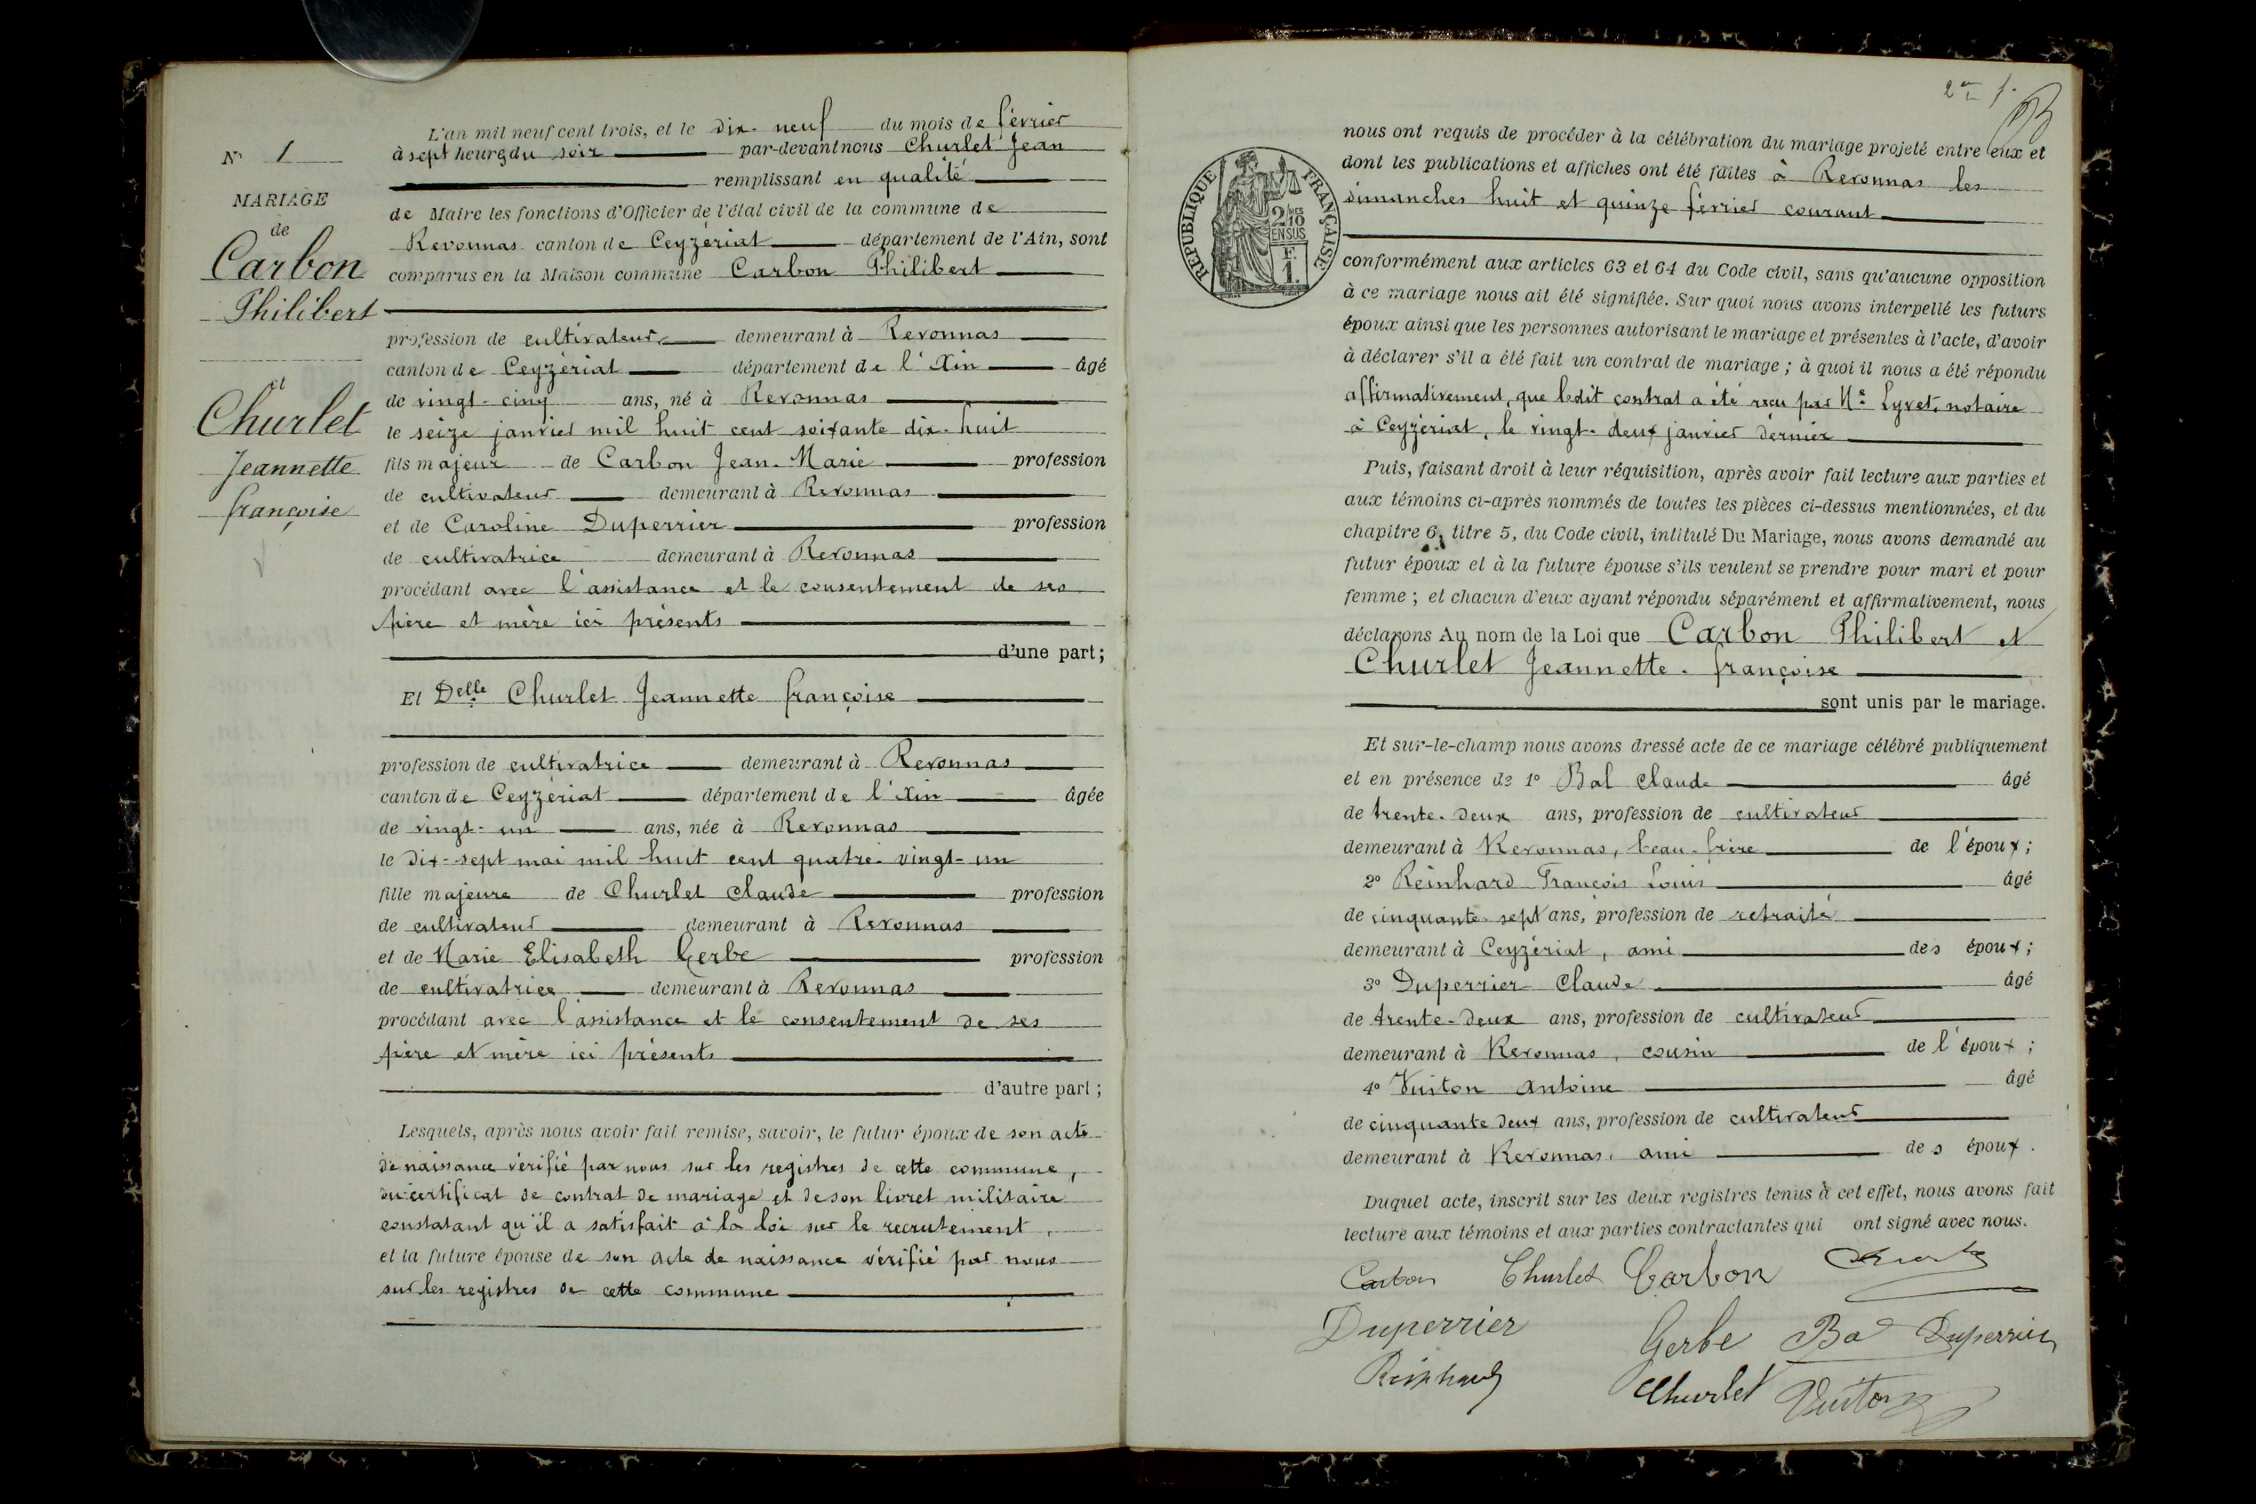 N° 1
MARIAGE
de
Carbon
Philibert
et
Churlet
Jeannette
françoise
L'an mil neuf cent trois, et le dix-neuf du mois de février
à sept heures du soir par-devant nous Churlet Jean
remplissant en qualité
de Maire les fonctions d'Officier de l'état civil de la commune de
Revonnas canton de Ceyzériat département de l'Ain, sont
comparus en la Maison commune Carbon Philibert
profession de cultivateur demeurant à Revonnas
canton de Ceyzériat département de l'Ain âgé
de vingt-cinq ans, né à Revonnas
le seize janvier mil huit cent soixante dix-huit
fils majeur de Carbon Jean-Marie profession
de cultivateur demeurant à Revonnas
et de Caroline Duperrier profession
de cultivatrice demeurant à Revonnas
procédant avec l'assistance et le consentement de ses
père et mère ici présents
d'une part;
Et Delle Churlet Jeannette françoise
profession de cultivatrice demeurant à Revonnas
canton de Ceyzériat département de l'Ain âgée
de vingt-un ans, née à Revonnas
le dix-sept mai mil huit cent quatre-vingt-un
fille majeure de Churlet Claude profession
de cultivateur demeurant à Revonnas
et de Marie Elisabeth Gerbe profession
de cultivatrice demeurant à Revonnas
procédant avec l'assistance et le consentement de ses
père et mère ici présents
d'autre part;
Lesquels, après nous avoir fait remise, savoir, le futur époux de son acte
de naissance vérifié par nous sur les registres de cette commune,
du certificat de contrat de mariage et de son livret militaire
constatant qu'il a satisfait à la loi sur le recrutement,
et la future épouse de son acte de naissance vérifié par nous
sur les registres de cette commune
RÉPUBLIQUE FRANÇAISE
2/10
EN SUS
F.
1.
nous ont requis de procéder à la célébration du mariage projeté entre eux et
dont les publications et affiches ont été faites à Revonnas les
dimanches huit et quinze février courant
conformément aux articles 63 et 64 du Code civil, sans qu'aucune opposition
à ce mariage nous ait été signifiée. Sur quoi nous avons interpellé les futurs
époux ainsi que les personnes autorisant le mariage et présentes à l'acte, d'avoir
à déclarer s'il a été fait un contrat de mariage; à quoi il nous a été répondu
affirmativement, que ledit contrat a été reçu par Me Lyvet, notaire
à Ceyzériat, le vingt-deux janvier dernier
Puis, faisant droit à leur réquisition, après avoir fait lecture aux parties et
aux témoins ci-après nommés de toutes les pièces ci-dessus mentionnées, et du
chapitre 6, titre 5, du Code civil, intitulé Du Mariage, nous avons demandé au
futur époux et à la future épouse s'ils veulent se prendre pour mari et pour
femme; et chacun d'eux ayant répondu séparément et affirmativement, nous
déclarons Au nom de la Loi que Carbon Philibert et
Churlet Jeannette-françoise
sont unis par le mariage.
Et sur-le-champ nous avons dressé acte de ce mariage célébré publiquement
et en présence de 1° Bal Claude âgé
de trente-deux ans, profession de cultivateur
demeurant à Revonnas, beau-frère de l'époux;
2° Reinhard François Louis âgé
de cinquante-sept ans, profession de retraité
demeurant à Ceyzériat, ami des époux;
3° Duperrier Claude âgé
de trente-deux ans, profession de cultivateur
demeurant à Revonnas, cousin de l'époux;
4° Vuiton Antoine âgé
de cinquante deux ans, profession de cultivateur
demeurant à Revonnas, ami des époux.
Duquel acte, inscrit sur les deux registres tenus à cet effet, nous avons fait
lecture aux témoins et aux parties contractantes qui ont signé avec nous.
Carbon Churlet Carbon
Duperrier Gerbe Bal Duperrier
Reinhard Churlet Vuiton